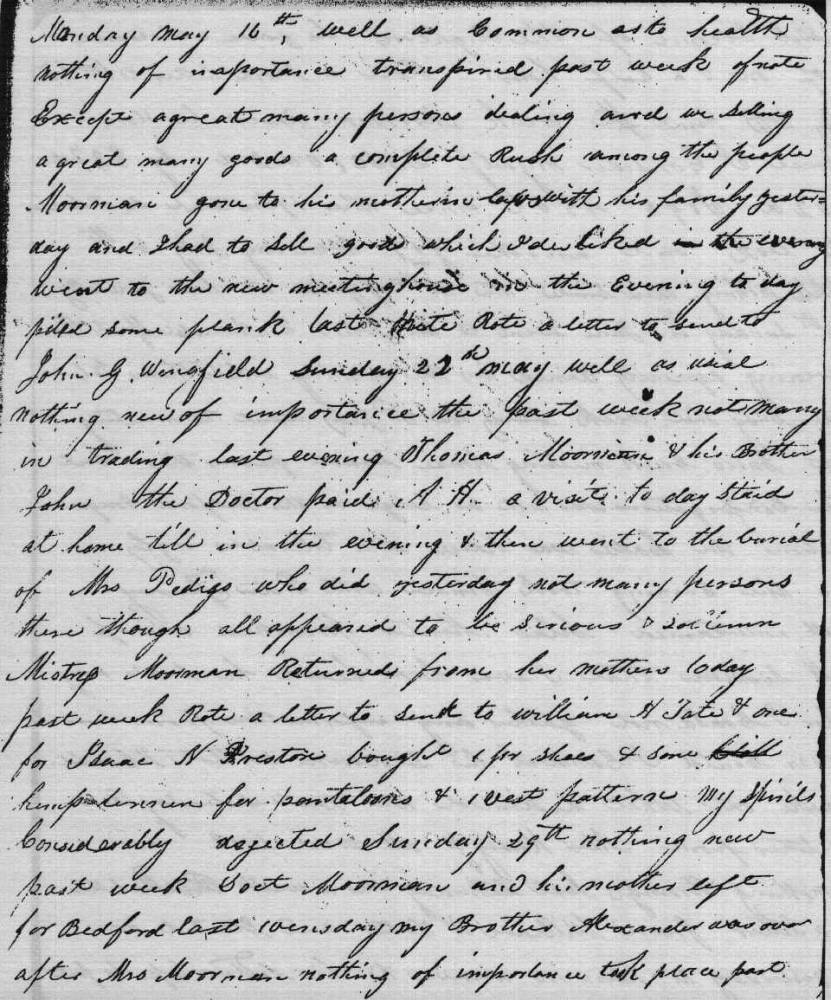 Monday may 16th, well as Common as to health
nothing of inaportance transpired past week of note
Except agreat many persons dealing and we selling
a great many goods a complete Rush among the people
Moorman gone to his mother in laws with his family yester=
day and I had to sell goods which I disliked in the evening
went to the new meeting house in the Evening to day
piled some plank last Rote a letter to send to
John G Wingfield Sunday 22nd may well as usial
nothing new of importance the past week not many
in trading last evening Thomas Moorman & his Brother
John the Doctor paid A H a visit to day Staid
at home till in the evening & then went to the burial
of Mrs Pedigo who did yesterday not many persons
there though all appeared to be Serious & sollemn
Mistress Moorman Returned from her mothers today
past week Rote a letter to send to william H Tate & one
for Isaac N Preston bought 1 pr shoes & some
hemp linnen for pantaloons & 1 vest pattern My Spirits
Considerably dejected Sunday 29th nothing new
past week Doct Moorman and his mother left
for Bedford last wensday my Brother Alexander was over
after Mrs Moorman nothing of importance took place past